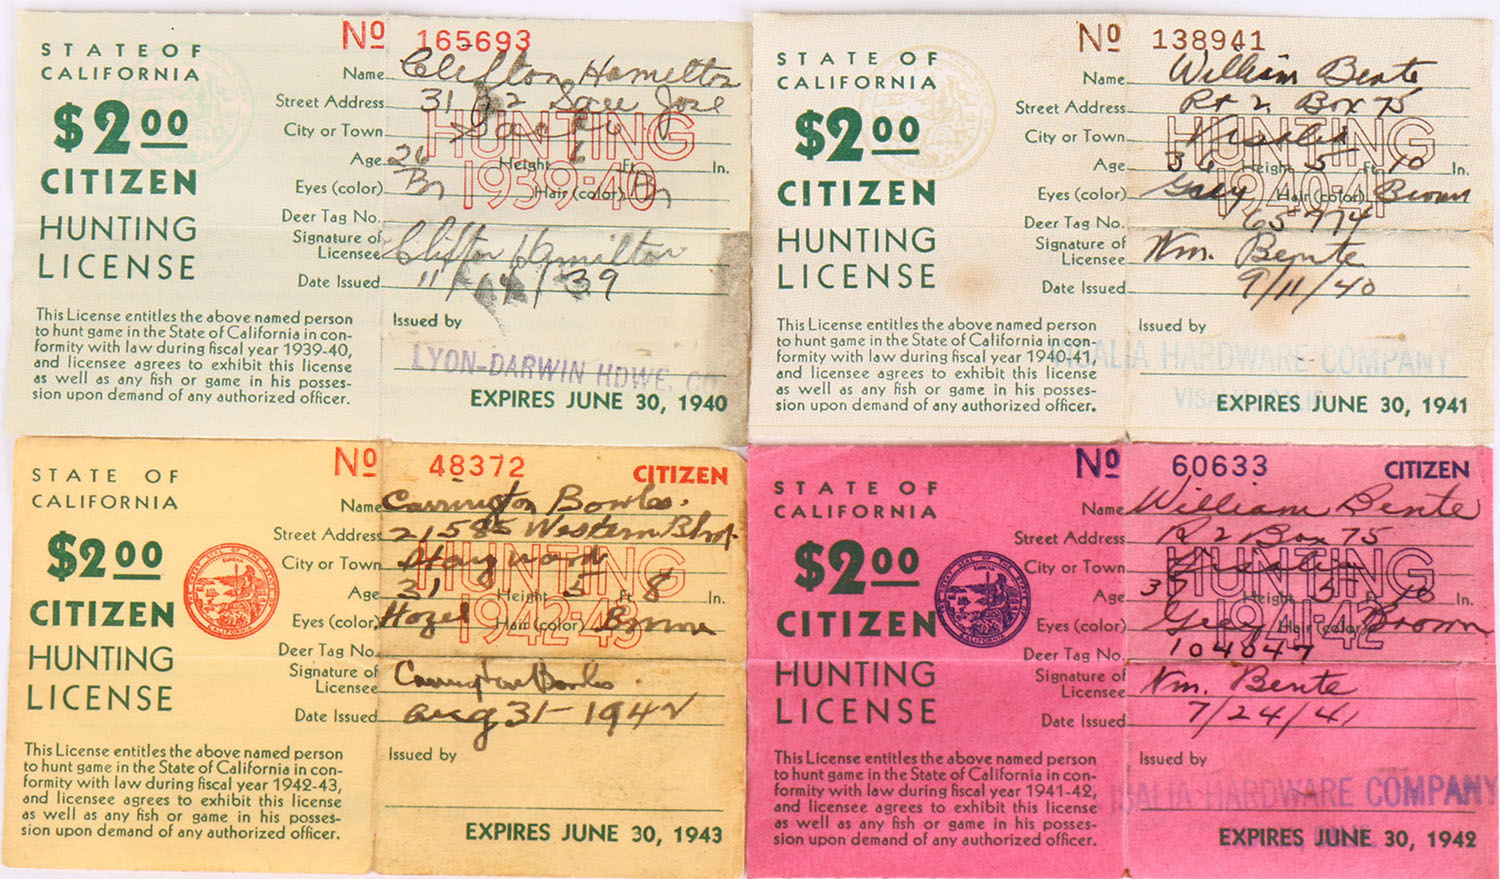 STATE OF
CALIFORNIA
$2.00
CITIZEN
HUNTING
LICENSE
This License entitles the above named person
to hunt game in the State of California in con-
formity with law during fiscal year 1939-40,
and licensee agrees to exhibit this license
as well as any fish or game in his posses-
sion upon demand of any authorized officer.
No 165693
Name Clifton Hamilton
Street Address 31 San Jose
City or Town
HUNTING
1939-40
Age 26 Height 6 Ft. In.
Eyes (color) Br Hair (color) Br
Deer Tag No.
Signature of
Licensee Clifton Hamilton
Date Issued 11/14/39
Issued by
LYON-DARWIN HDWE. CO
EXPIRES JUNE 30, 1940
STATE OF
CALIFORNIA
$2.00
CITIZEN
HUNTING
LICENSE
This License entitles the above named person
to hunt game in the State of California in con-
formity with law during fiscal year 1940-41,
and licensee agrees to exhibit this license
as well as any fish or game in his posses-
sion upon demand of any authorized officer.
No 138941
Name William Bente
Street Address Rt 2. Box 75
City or Town Visalia
HUNTING
1940-41
Age 36 Height 5 Ft. 10 In.
Eyes (color) Grey Hair (color) Brown
Deer Tag No. 65974
Signature of
Licensee Wm. Bente
Date Issued 9/11/40
Issued by
VISALIA HARDWARE COMPANY
EXPIRES JUNE 30, 1941
STATE OF
CALIFORNIA
$2.00
CITIZEN
HUNTING
LICENSE
This License entitles the above named person
to hunt game in the State of California in con-
formity with law during fiscal year 1942-43,
and licensee agrees to exhibit this license
as well as any fish or game in his posses-
sion upon demand of any authorized officer.
No 48372 CITIZEN
Name Carrington Bowles.
Street Address 21585 Western Blvd.
City or Town Hayward
HUNTING
1942-43
Age 31 Height 5 Ft. 8 In.
Eyes (color) Hazel Hair (color) Brown
Deer Tag No.
Signature of
Licensee Carrington Bowles
Date Issued Aug 31-1942
Issued by
EXPIRES JUNE 30, 1943
STATE OF
CALIFORNIA
$2.00
CITIZEN
HUNTING
LICENSE
This License entitles the above named person
to hunt game in the State of California in con-
formity with law during fiscal year 1941-42,
and licensee agrees to exhibit this license
as well as any fish or game in his posses-
sion upon demand of any authorized officer.
No 60633 CITIZEN
Name William Bente
Street Address R 2 Box 75
City or Town Visalia
HUNTING
1941-42
Age 37 Height 5 Ft. 10 In.
Eyes (color) Grey Hair (color) Brown
Deer Tag No. 104047
Signature of
Licensee Wm. Bente
Date Issued 7/24/41
Issued by
VISALIA HARDWARE COMPANY
EXPIRES JUNE 30, 1942